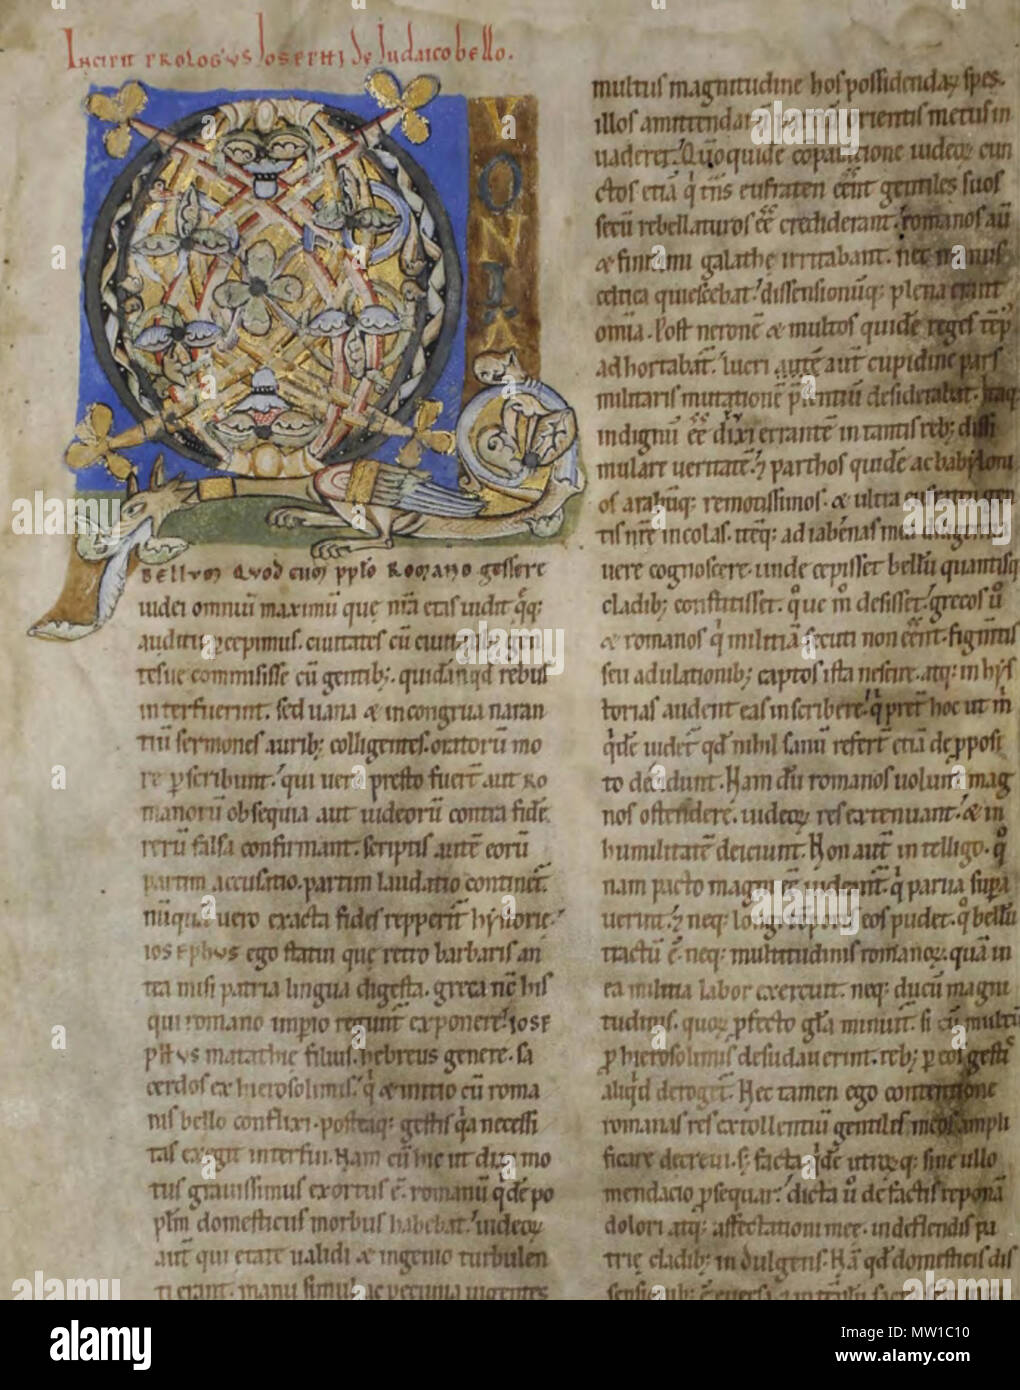 Incipit prologus Iosephi de Iudaico bello.
QVONIA
Bellum quod cum pplo Romano gessere
iudei omniū maximū que nr̄a etas uidit q̄q;
auditu pcepimus. ciuitates cū ciuitatib; gen
tesue commisisse cū gentib;. quidā nqd rebus
interfuerint. sed uana & incongrua narran
tiū sermones aurib; colligentes. oratorū mo
re pscribunt. qui uero presto fuerꝉ aut Ro
manorū obsequia aut iudeorū contra fidē
rerū falsa confirmant. scriptis autē eorū
partim accusatio. partim laudatio continet.
nūquā uero exacta fides repperitur hystorie.
Iosephus ego statui que retro barbaris an
tea misi patria lingua digesta. greca nc̄ his
qui romano imperio regunt exponere. Iose
phus matathie filius. hebreus genere. sa
cerdos ex hierosolimis. q̇ & initio cū roma
nis bello conflixi. posteaq; gestis q̄a necessi
tas exegit interfui. Nam cū hic ut dixi mo
tus grauissimus exortus ē. romanū q̇dē po
plm̄ domesticus morbus habebat. iudeoꝝ
autē qui etate ualidi & ingenio turbulen
ti erant. manu simul ac pecunia uigentes
multus magnitudine hos possidendaꝝ spes.
illos amittendaꝝ partiū orientis metus in
uaderet. Quoquidē cōparatione iudeoꝝ cun
ctos etiā q̇ trās eufraten eēnt gentiles suos
secū rebellaturos eē crediderant. romanos aū
& finitimi galathe irritabant. nec manus
celtica quiescebat. dissensionūq; plena erant
omīa. Post neronē & multos quidē reges tēp
adhortabat. lucri autē aut cupidine pars
militaris mutationē presentiū desiderabat. Itaq;
indignū eē duxi errantē in tantis reb; dissi
mulare ueritatē. & parthos quidē ac babyloni
os arabūq; remotissimos. & ultra eufraten gen
tis nr̄e incolas. itēq; adiabenas mea diligentia
uere cognoscere. unde cepisset bellū quantisq;
cladib; constitisset. quo m̄ desisset. grecos ū
& romanos q̇ militiā secuti non eēnt. figmtis
seu adulationib; captos ista nescire. atq; in hys
torias audent eas inscribere. q̇ preter hoc ut m̄
q̇dē uidet qd̄ nihil sanū referēt etiā de pposi
to decidunt. Nam dū romanos uolunt mag
nos ostendere. iudeoꝝ res extenuant. & in
humilitatē deiciunt. Non autē intelligo. quo
nam pacto magni eē uideantꝉ. q̇ parua supa
uerint. & neq; longi tēporis eos pudet. quo bellū
tractū ē. neq; multitudinis romanoꝝ. quā in
ea militia labor exercuit. neq; ducū magni
tudinis. quoꝝ pfecto gl̄a minuitꝉ. si cū multū
p hierosolimis desudauerint. reb; p eos gestis
aliqd derogetꝉ. Nec tamen ego contentione
romanas res extollentiū gentiles meos ampli
ficare decreui. s; facta q̇dē utroꝝq; sine ullo
mendacio psequar. dicta ū de factis reponā
dolori atq; affectationi mee. in deflendis pa
trie cladib; indulgens. Nā qd̄ domesticis dis
a alamy
alamy
Image ID: MW1C10
www.alamy.com